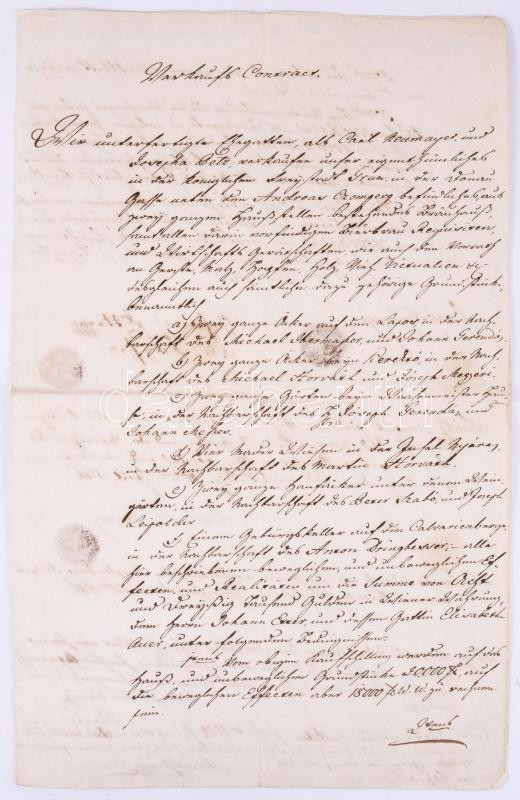 Verkaufs Contract.
Wir unterfertigte Ehegatten, als Carl Neumayer, und
Josepha Betz verkaufen unser eigenthümliches
in der königlichen Freystadt Gran, in der Donau
Gasse neben dem Andreas befindliches aus
zwey ganzen Hausstellen bestehendes Bräuhaus
samt allen darin vorfindigen Bierbrau Requisiten,
und Wirthschafts Geräthschaften wie auch den Vorrath
an Gerste, Malz, Hopfen, Holz, Vieh, Victualien
desgleichen auch sämtliche dazu gehörige Grundstücke
benanntlich
a) Zwey ganze Äcker auf dem Lapos, in der Nach-
barschaft des Michael und Johann
b) Zwey ganze Äcker beym Kerektó in der Nach-
barschaft des Michael Horváth und Joseph Megyeri.
c) Zwey ganze Gärten beym
in der Nachbarschaft des H. Joseph und
Johann
d) Vier Mader Wiesen in der Insel
in der Nachbarschaft des Martin Horváth.
e) Zwey ganze Hanfäcker unter denen Wein-
gärten, in der Nachbarschaft des Peter Szabó, und Joseph
Lapolder
f) Einem Gebürgskeller auf dem Calvarienberge,
in der Nachbarschaft des Anton alle
hier beschriebenen beweglichen, und unbeweglichen Ef-
fecten, und Realitäten um die Summe von Acht
und Dreyßig tausend Gulden in Wiener Währung,
dem Herrn Johann und dessen Gattin Elisabetha
Auer, unter folgenden Bedingnissen:
1tens Vom obigen Kaufschilling werden auf das
Haus, und unbeweglichen Grundstücke 20.000 f, auf
die beweglichen Effecten aber 18000 f W. W. zu rechnen
seyn.
2tens
Darabanth